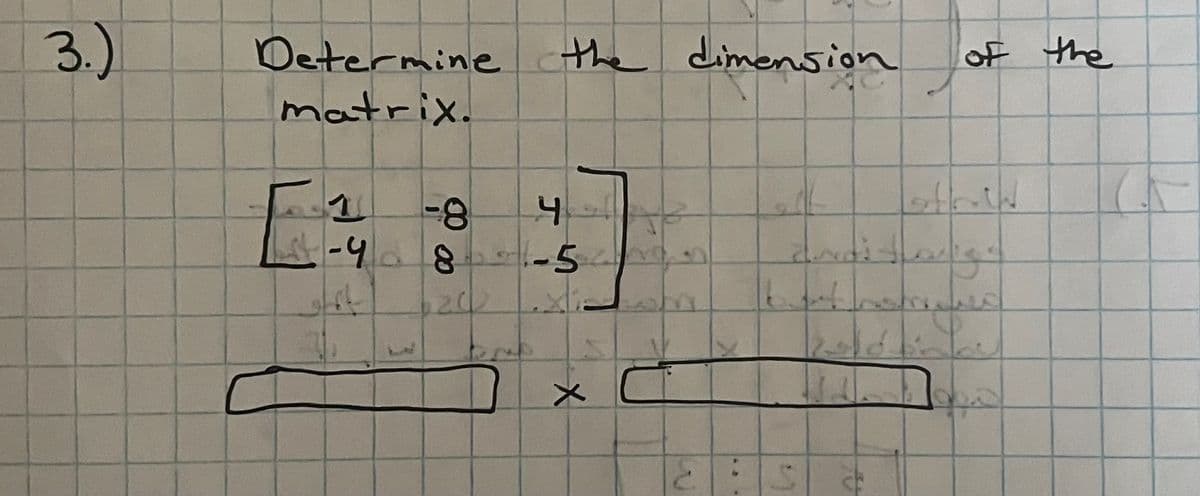 3.) Determine the dimension of the
matrix.
1 -8 4
-4 8 -5
×